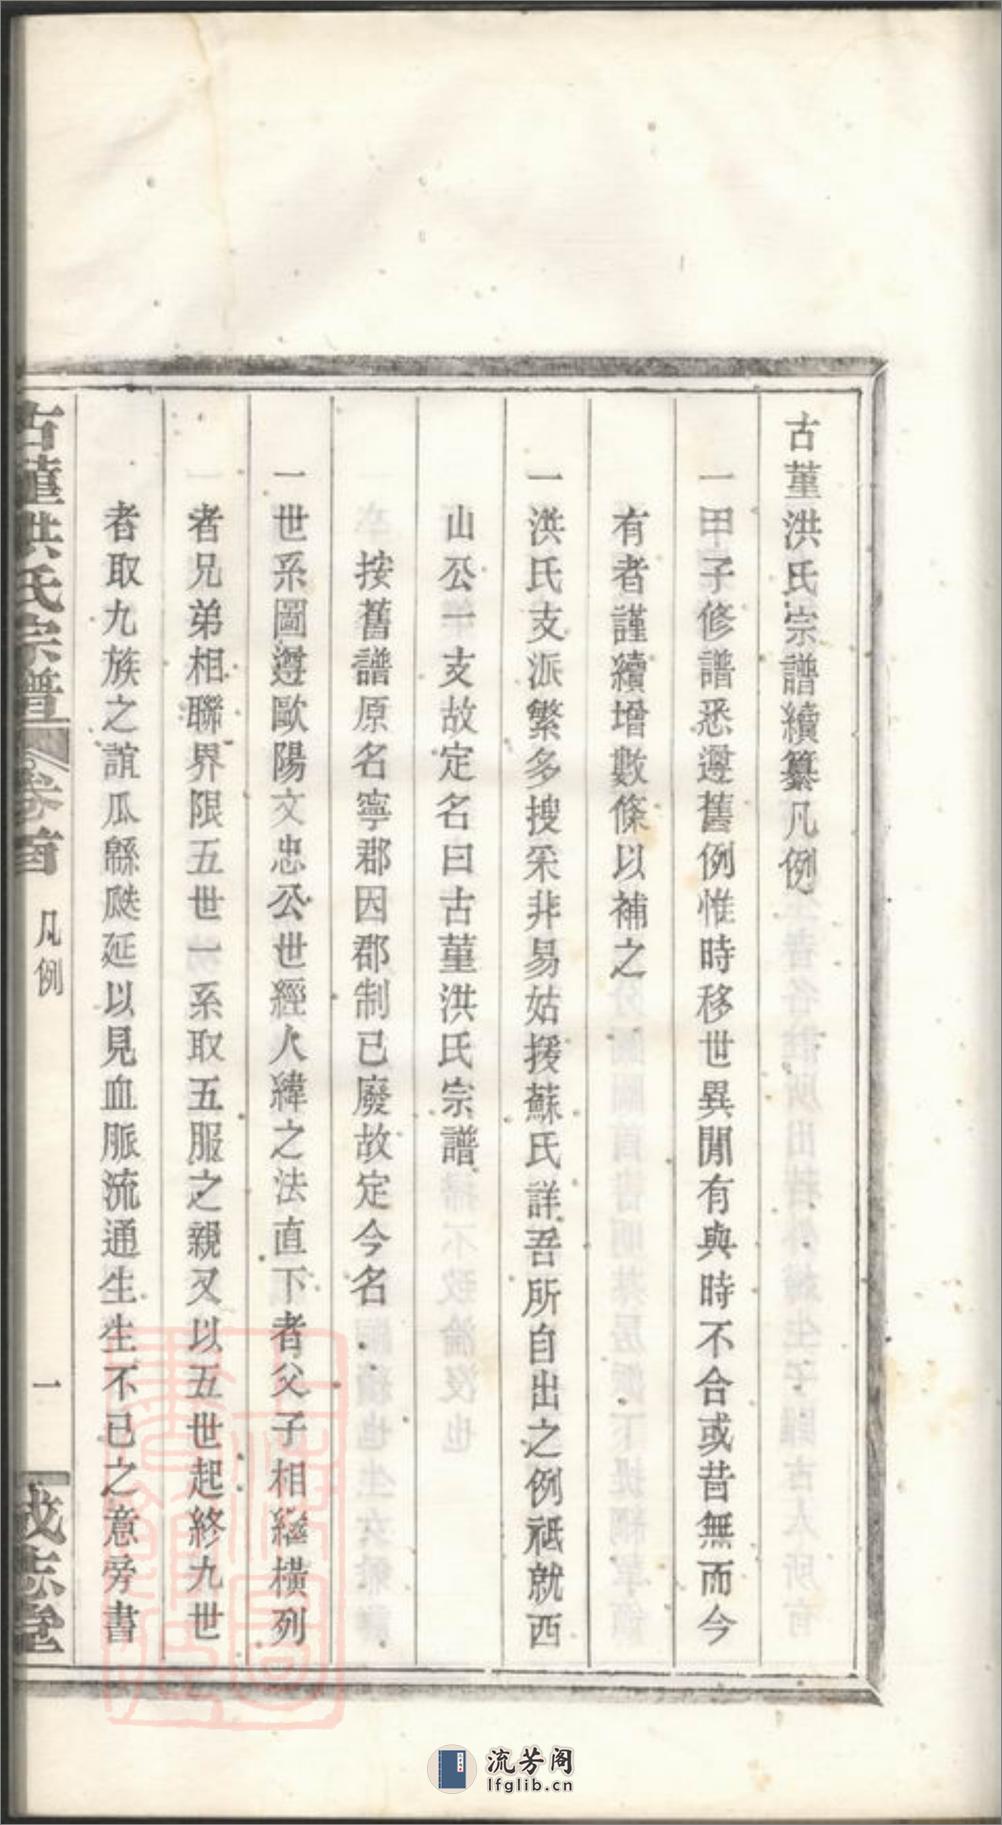 古菫洪氏宗譜續纂凡例
一甲子修譜悉遵舊例惟時移世異閒有與時不合或昔無而今
有者謹續增數條以補之
一洪氏支派繁多搜采非易姑援蘇氏詳吾所自出之例祗就西
山公一支故定名曰古菫洪氏宗譜
按舊譜原名寧郡因郡制已廢故定今名
一世系圖遵歐陽文忠公世經人緯之法直下者父子相繼橫列
者兄弟相聯界限五世一系取五服之親又以五世起終九世
者取九族之誼瓜緜瓞延以見血脈流通生生不已之意旁書
古菫洪氏宗譜
卷首
凡例
一
成志堂
流芳阁
lfglib.cn